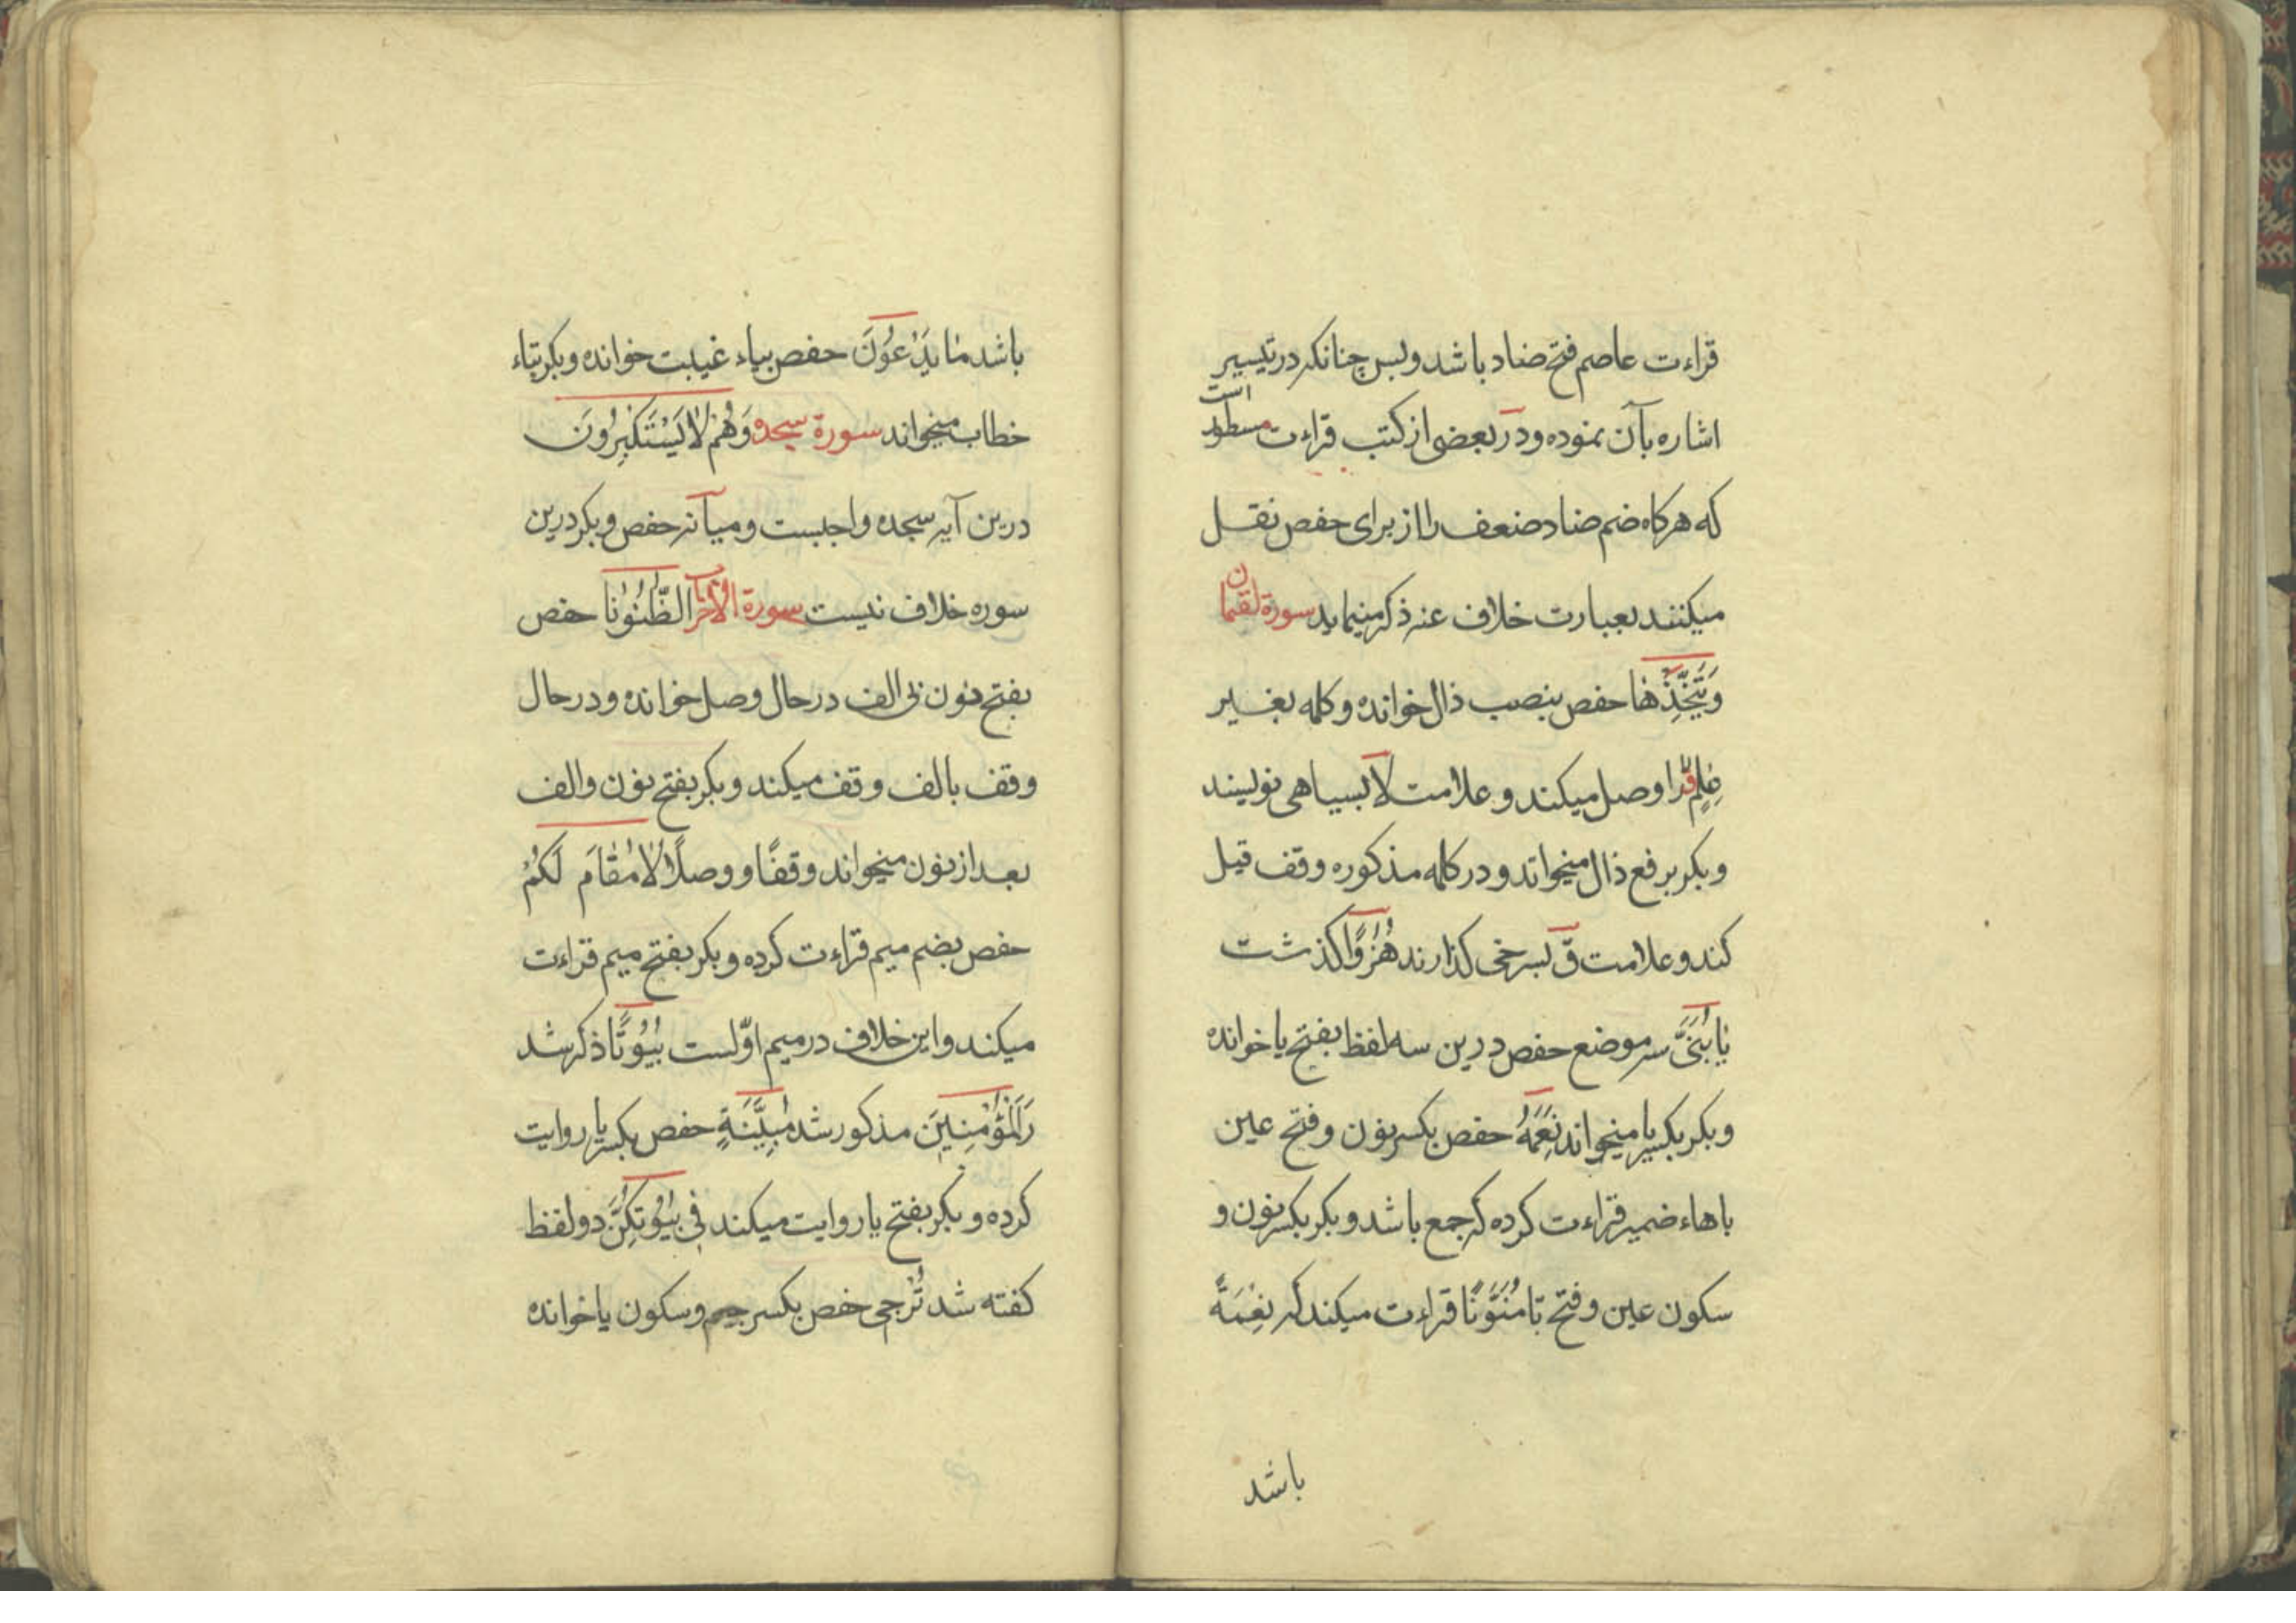 قراءت عاصم فتح ضاد باشد وبس چنانکه در تیسیر
اشاره بآن نموده ودر بعضی از کتب قراءت مسطور است
که هرکاه ضم ضاد ضعف را از برای حفص نقل
میکنند بعبارت خلاف عنه ذکر مینماید سورة لقمان
وَيَتَّخِذَهَا حفص بنصب ذال خوانده وکلمه بغیر
عِلْمٍ را وصل میکند و علامت لا بسیاهی نویسند
وبکر برفع ذال میخواند ودر کلمه مذکوره وقف قیل
کند وعلامت ق بسرخی کذارند هُزُوًا کذشت
یَا بُنَیَّ سه موضع حفص درین سه لفظ بفتح یا خوانده
وبکر بکسر یا میخواند نِعَمَهُ حفص بکسر نون وفتح عین
باهاء ضمیر قراءت کرده که جمع باشد وبکر بکسر نون و
سکون عین وفتح تا مُنَوَّنًا قراءت میکند که نِعْمَةً
باشد
باشد مَا يَدْعُونَ حفص بیاء غیبت خوانده وبکر بتاء
خطاب میخواند سورة سجده وَهُمْ لَا يَسْتَكْبِرُونَ
درین آیه سجده واجبست ومیانه حفص وبکر درین
سوره خلاف نیست سورة الاحزاب الظُّنُونَا حفص
بفتح نون بی الف در حال وصل خوانده ودر حال
وقف بالف وقف میکند وبکر بفتح نون والف
بعد از نون میخواند وقفًا ووصلًا لَا مُقَامَ لَكُمْ
حفص بضم میم قراءت کرده وبکر بفتح میم قراءت
میکند واین خلاف در میم اوّلست بُيُوتًا ذکر شد
مذکور شد مُبَيِّنَةٍ حفص بکسر یا روایت
کرده وبکر بفتح یا روایت میکند فِي بُيُوتِكُنَّ دو لفظ
کفته شد تُرْجِی حفص بکسر جیم وسکون یا خوانده